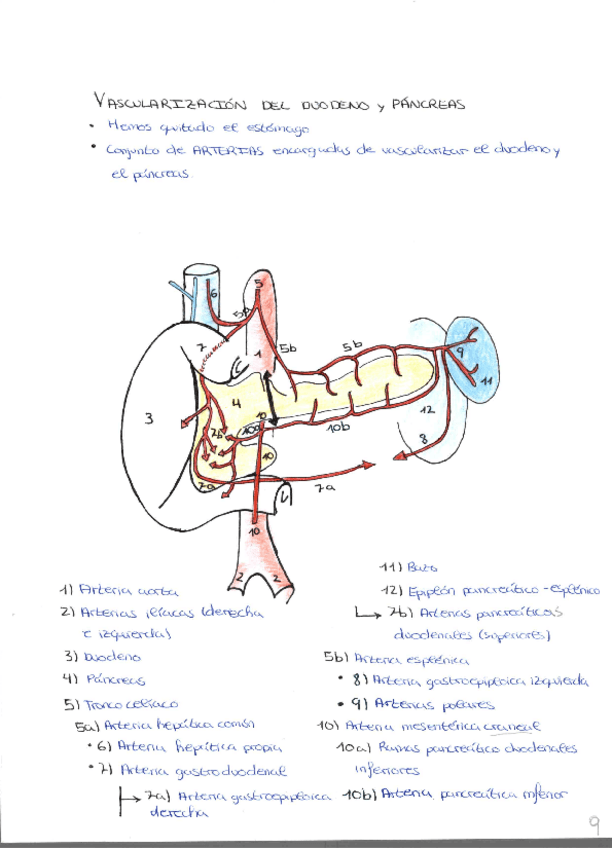 VASCULARIZACIÓN DEL DUODENO y PÁNCREAS
• Hemos quitado el estómago
• Conjunto de ARTERIAS encargadas de vascularizar el duodeno y
el páncreas.
6
5
5a
7
1
5b
5b
9
11
3
4
10
12
7b
10a
10b
8
10
7a
7a
10
2
2
1) Arteria aorta
2) Arterias ilíacas (derecha
e izquierda)
3) Duodeno
4) Páncreas
5) Tronco celíaco
5a) Arteria hepática común
• 6) Arteria hepática propia
• 7) Arteria gastroduodenal
7a) Arteria gastroepiploica
derecha
11) Bazo
12) Epiplón pancreático-esplénico
7b) Arterias pancreáticos
duodenales (superiores)
5b) Arteria esplénica
• 8) Arteria gastroepiploica izquierda
• 9) Arterias polares
10) Arteria mesentérica craneal
10a) Ramas pancreático duodenales
inferiores
10b) Arteria pancreática inferior
9